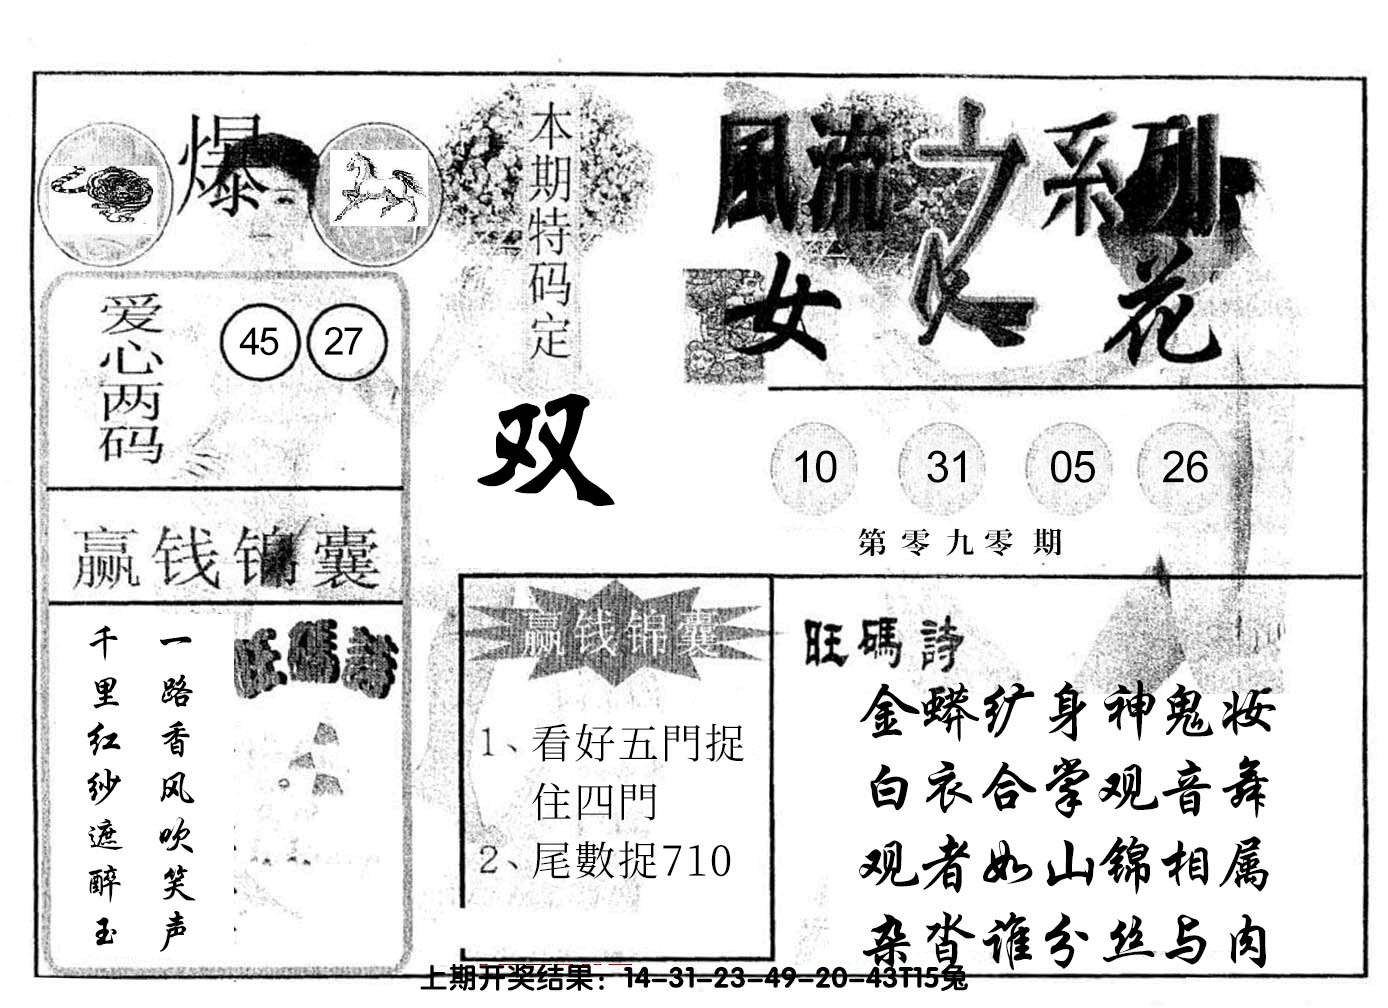 爆
本期特码定
双
風流之系列
女人花
爱心两码
45 27
10 31 05 26
第零九零期
赢钱锦囊
一路香风吹笑声
千里红纱遮醉玉
旺碼詩
赢钱锦囊
1、看好五門捉
住四門
2、尾數捉710
旺碼詩
金蟒纩身神鬼妆
白衣合掌观音舞
观者如山锦相属
杂沓谁分丝与肉
上期开奖结果：14-31-23-49-20-43T15兔